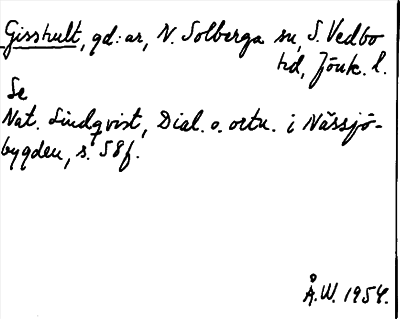 Gisshult, gd:ar, N. Solberga sn, S. Vedbo
hd, Jönk. l.
Se
Nat. Lindqvist, Dial. o. ortn. i Nässjö-
bygden, s. 58f.
Å.W. 1954.